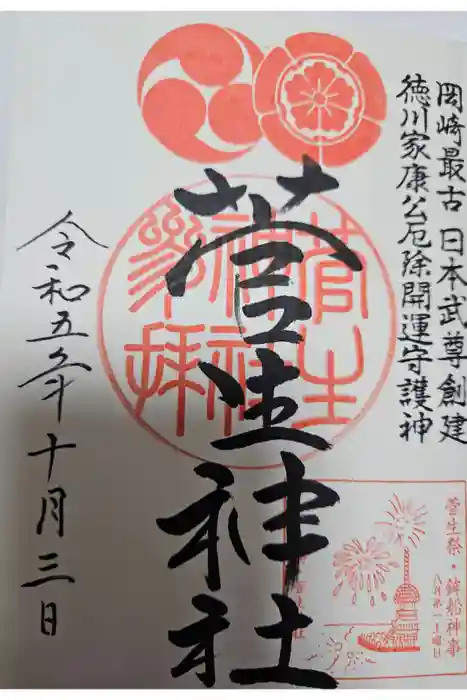 岡崎最古 日本武尊創建
徳川家康公厄除開運守護神
菅生神社
菅生神社参拝
令和五年十月三日
菅生祭・鉾船神事